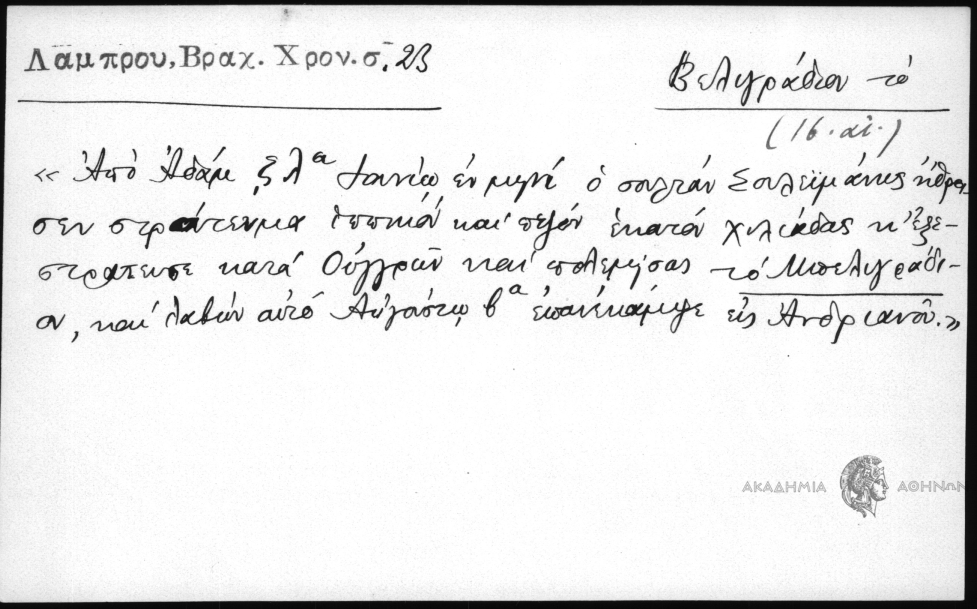 Λαμπρου, Βραχ. Χρον. σ. 23
Βελιγράδιον τὸ
(16. αἰ.)
« Ἀπὸ Ἀδὰμ ζλα Ἰουνίῳ ἐν μηνὶ ὁ σουλτὰν Σουλεϊμάνης ἤθροι-
σεν στράτευμα ἱππικόν καὶ πεζόν ἑκατόν χιλιάδας κ' ἐξε-
στράτευσε κατά Οὔγγρων καὶ πολεμήσας τὸ Μπελιγράδι-
ον, καὶ λαβών αὐτό Αὐγούστῳ βα ἐπανέκαμψε εἰς Ἀνδριανοῦ.»
ΑΚΑΔΗΜΙΑ ΑΘΗΝΩΝ